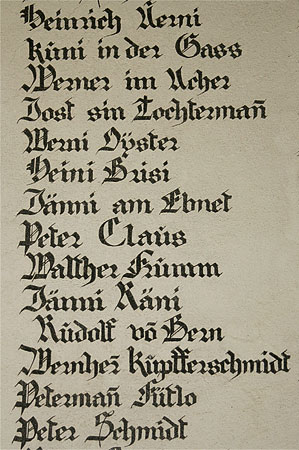 Heinrich Aerni
Küni in der Gass
Werner im Acher
Jost sin Tochtermañ
Werni Oÿster
Heini Brisi
Jänni am Ebnet
Peter Claus
Walther Frümm
Jänni Räni
Rüdolf võ Bern
Wernher̃ Küpfferschmidt
Petermañ Fütlo
Peter Schmidt